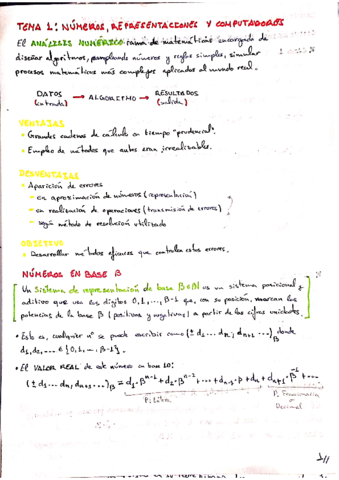 TEMA 1: NÚMEROS, REPRESENTACIONES Y COMPUTADORES
El ANÁLISIS NUMÉRICO rama de matemáticas encargada de
diseñar algoritmos, empleando números y reglas simples, simular
procesos matemáticos más complejos aplicados al mundo real.
DATOS → ALGORITMO → RESULTADOS
(entrada) (salida)
VENTAJAS
Grandes cadenas de cálculo en tiempo "prudencial".
Empleo de métodos que antes eran irrealizables.
DESVENTAJAS
Aparición de errores
- en aproximación de números (representación)
- en realización de operaciones (transmisión de errores)
- según método de resolución utilizado
OBJETIVO
Desarrollar métodos eficaces que controlen estos errores.
NÚMEROS EN BASE β
Un sistema de representación de base β∈ℕ es un sistema posicional y
aditivo que usa los dígitos 0, 1, ..., β-1 que, con su posición, marcan las
potencias de la base β (positivas y negativas) a partir de las cifras unidades.
• Esto es, cualquier nº se puede escribir como (± d₁ ... dₙ, dₙ₊₁ ...)β donde
d₁, d₂, ... ∈ {0, 1, ..., β-1}.
• El VALOR REAL de este número en base 10:
(± d₁ ... dₙ, dₙ₊₁ ...)β = d₁·βⁿ⁻¹ + d₂·βⁿ⁻² + ... + dₙ₋₁·β + dₙ + dₙ₊₁·β⁻¹ + ...
P. Entera P. Fraccionaria
o
Decimal